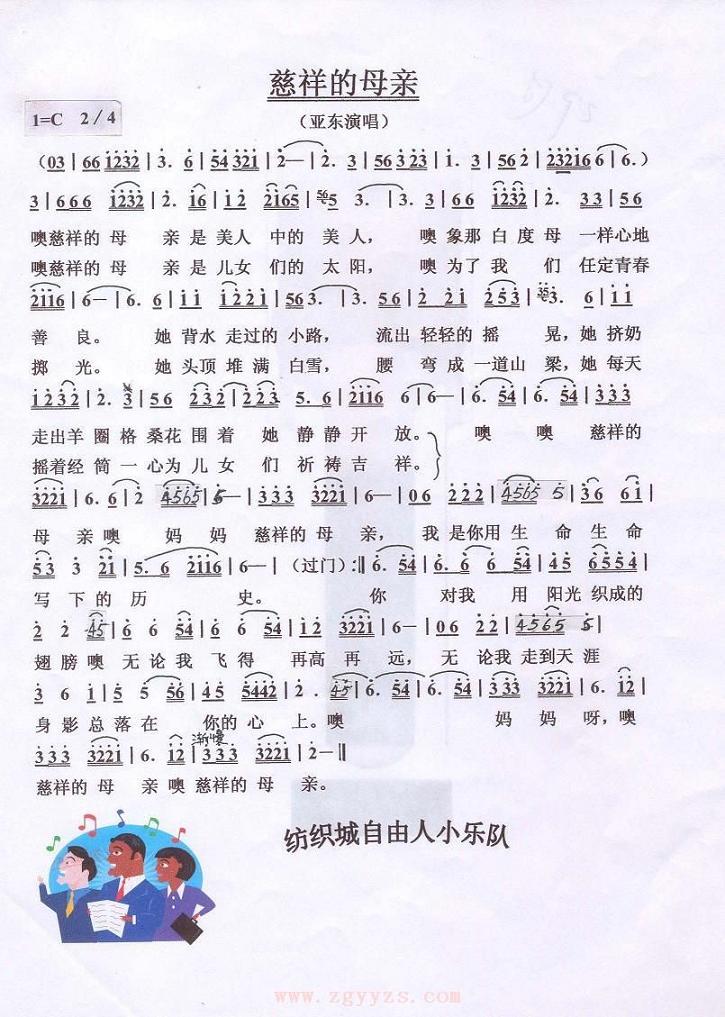 慈祥的母亲
1=C 2/4
（亚东演唱）
（03|66 1232|3. 6|54 321|2—|2. 3|56 3 23|1. 3|56 2|23216 6|6.）
3|6 6 6 1232|2. 16|12 2165|5 3. |3. 3|6 6 1232|2. 3 3|5 6
噢慈祥的 母 亲 是 美人 中的 美 人， 噢 象那 白 度 母 一样 心地
噢慈祥的 母 亲 是 儿女 们的 太 阳， 噢 为了 我 们 任定 青春
2116|6—|6. 6|11 1221|56 3. |3. 56|2 20 21|2 53|3. 6|11
善 良。 她 背水 走过的 小路， 流出 轻轻的 摇 晃，她 挤奶
掷 光。 她 头顶 堆 满 白雪， 腰 弯成 一道山 梁，她 每天
1232|2. 3|56 232|22 3 5. 6|2116 6|6—|6. 54|6. 54|333
走出羊 圈 格 桑花 围 着 她 静静 开 放。 噢 噢 慈祥的
摇着经 筒 一 心为 儿 女 们 祈 祷 吉 祥。
3221|6. 6|2 4565|5—|333 3221|6—|06 222|4565 5|36 61|
母 亲 噢 妈 妈 慈祥的 母 亲， 我 是你用 生 命 生命
53 3 21|5. 6 2116|6—|（过门）:‖6. 54|6. 54|45 6554|
写 下 的 历 史。 你 对我 用 阳光 织成的
2 2 45|6 6 54|6 6 54|12 3221|6—|06 22|4565 5|
翅 膀 噢 无 论 我 飞 得 再高 再 远， 无 论我 走到 天 涯
3 6 1|5 5 56|45 5442|2 . 45|6. 54|6. 54|333 3221|6. 12|
身 影 总 落 在 你的 心 上。噢 妈 妈 呀，噢
渐慢
333 3221|6. 12|333 3221|2—‖
慈祥的 母 亲 噢 慈祥的 母 亲。
纺织城自由人小乐队
www.zgyyzs.com